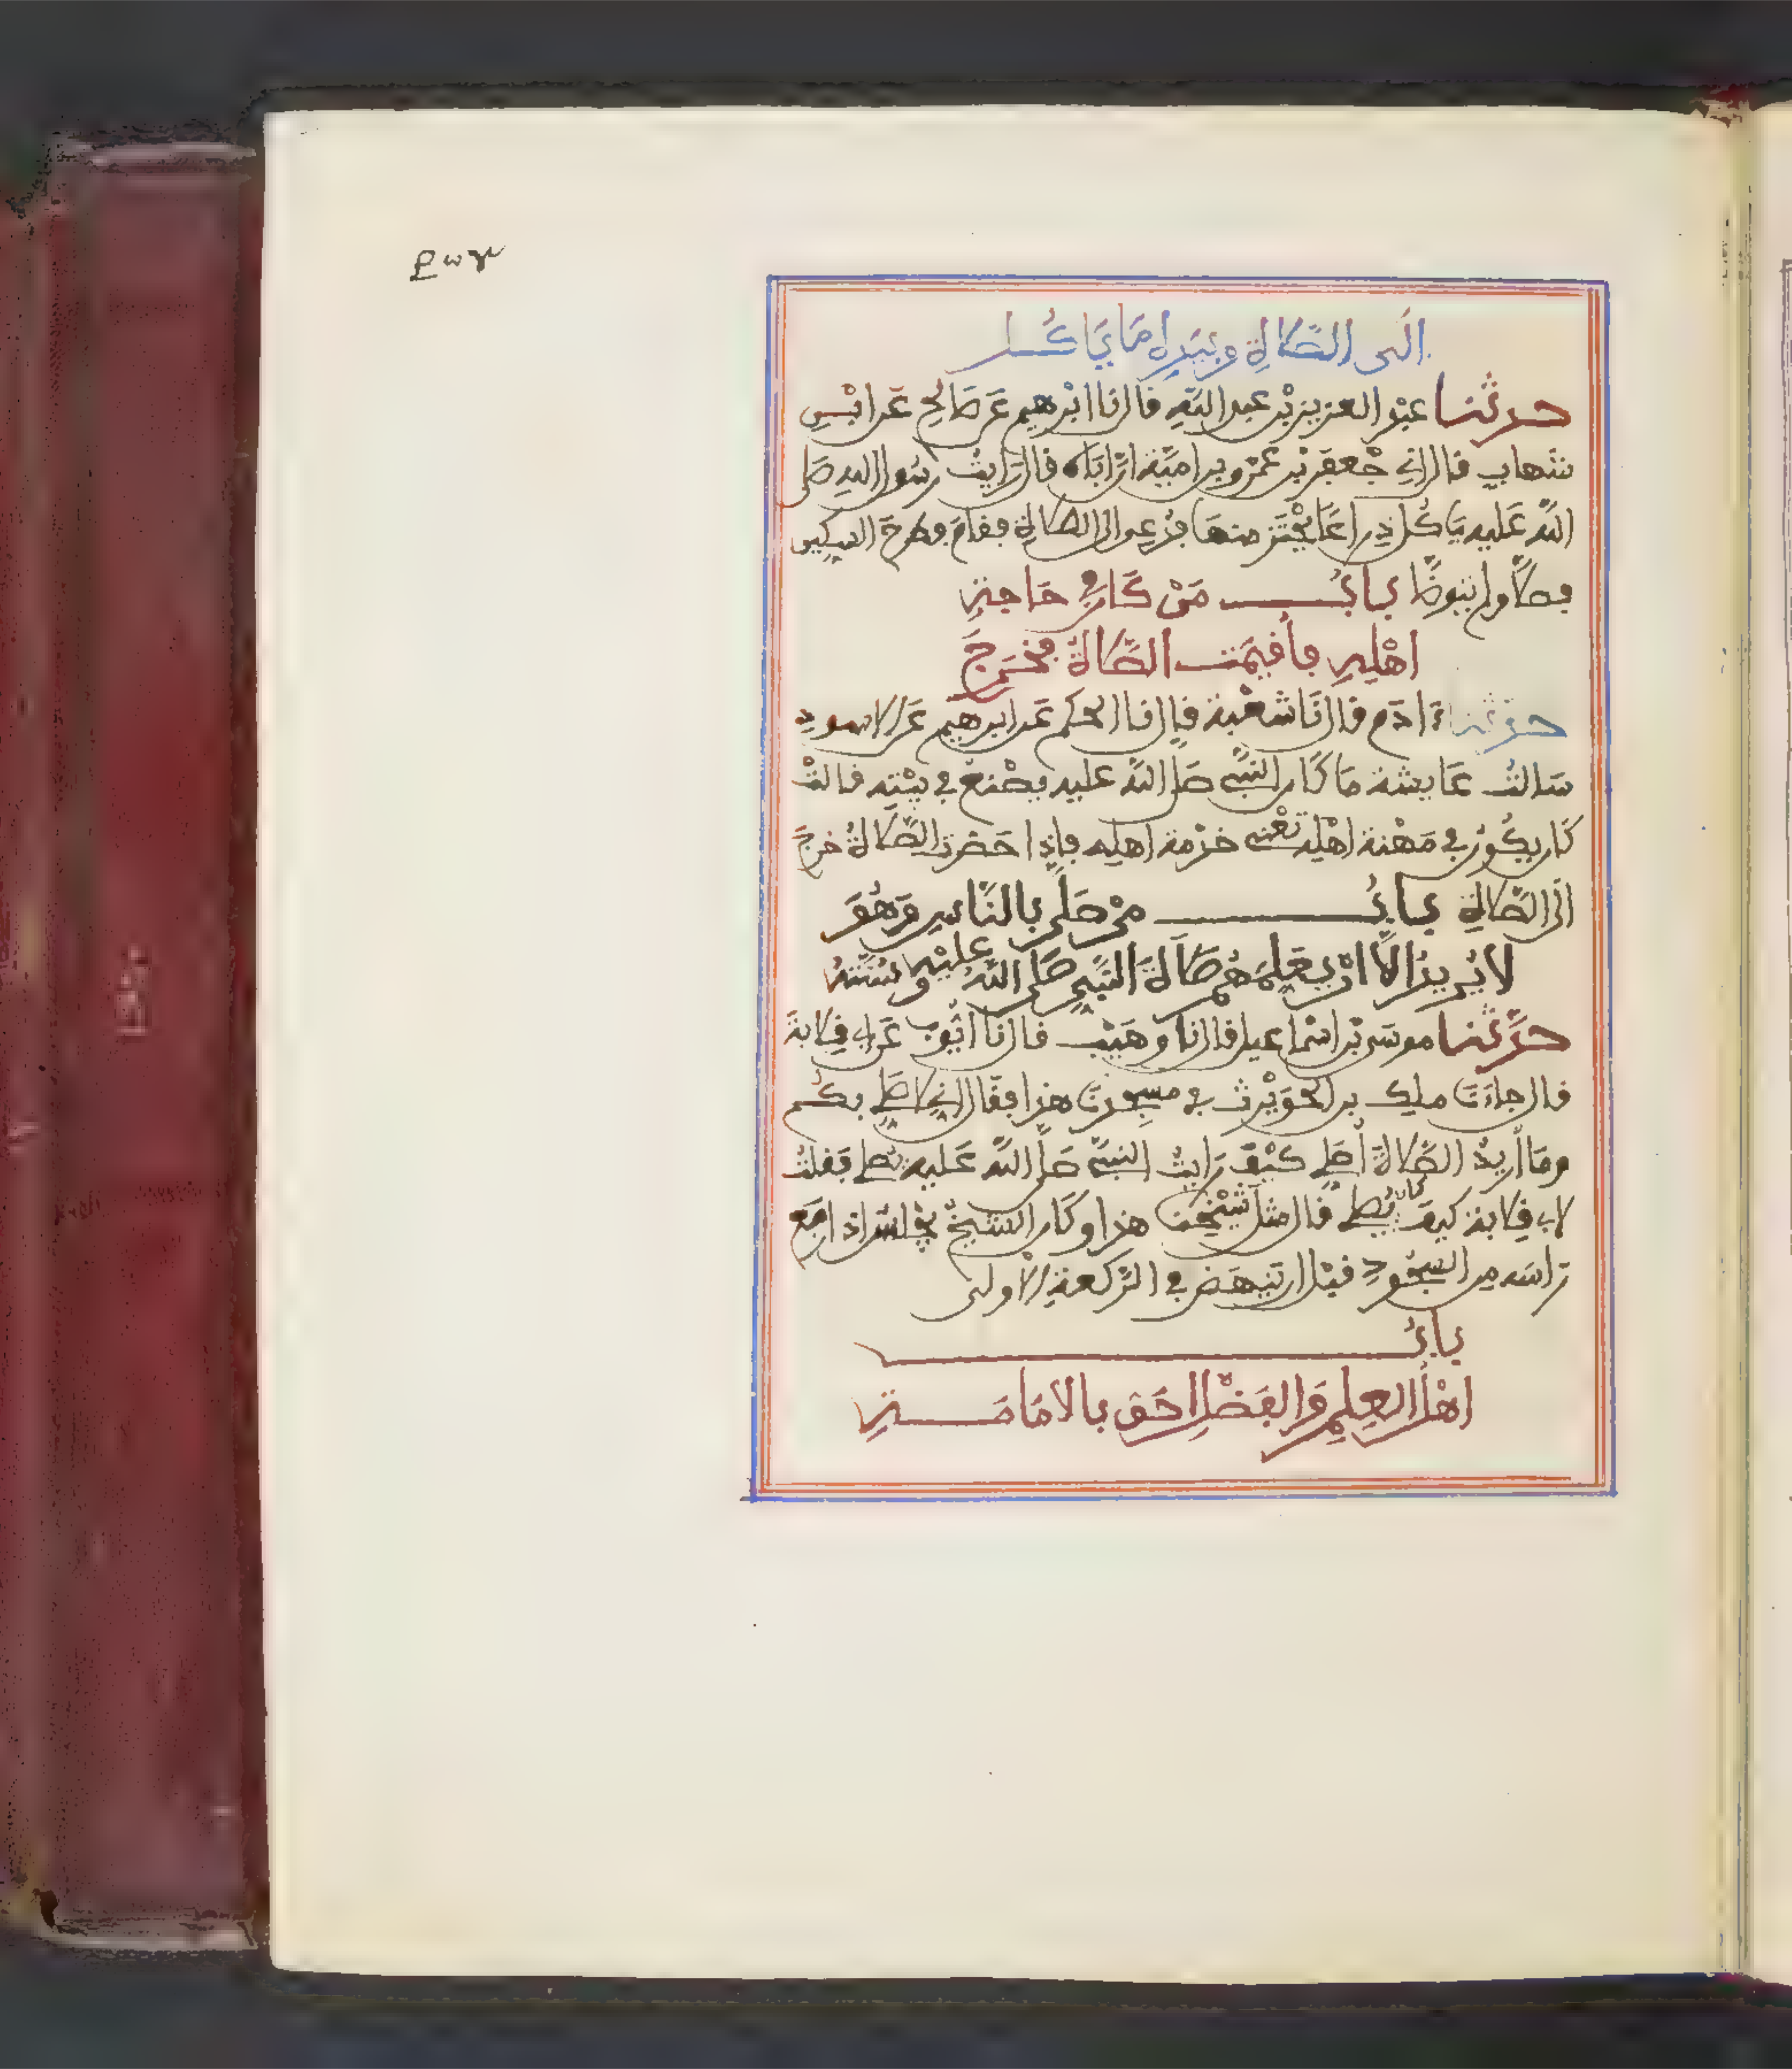 الَى الصَّلاةِ وبيَدِه مَا يَاكُــل
حدثنا عبْدُ العزيز بْن عبد اللهِ فال نا ابْرهيم عَن صَالحٍ عَن ابْــنِ
شهابٍ فال انِے جَعْفَر بْن عَمْرو بن امَيَّة انَّ ابَاه فال رَايتُ رسُول الله صَلى
اللهُ عَليه يَاكُل ذِراعًا يحْتَز منهَا فدُعى الى الصَّلاة ففامَ فطرحَ السكين
فصلَّى ولم يتوضَّا بـابُــــ مَنْ كَان في حَاجةِ
اهْلِهِ فأفِيمَت الصَّلاةُ فخَرجَ
حدثنا ءادَم فال نَا شعْبة فال نا الحكم عَن ابرهيم عَن الاسودِ
سَالتُ عَايشة مَا كَان النبىُّ صَلى اللهُ عليه يصْنع في بيْتِه فالتْ
كَان يكُون في مَهْنة اهْلِه تعْنى خدْمة اهلِه فإذا حضرت الصَّلاةُ خرجَ
الَى الصَّلاةِ بـابُـــــ مَن صَلَّى بالنَّاسِ وَهُوَ
لا يُريدُ الاَّ انْ يعَلِّمَهُم صَلاَةَ النَّبىِّ صَلى اللهُ عليْهِ وسُنَّتَهُ
حدَّثنا موسَى بْن اسْماعيل فال نا وهَيْب فال نا ايُّوب عَن ابى فِلابة
فال جاءَنَا ملِك بن الحوَيْرث في مسْجدنَا هذا ففال انِّى لاصَلِّى بكُم
ومَا أريدُ الصَّلاةَ أصَلِّى كيْفَ رَايتُ النبىَّ صَلى اللهُ عَليه يُصلى فَفلتُ
لابى فِلابة كيفَ كان يُصلى فال مثل شيْخِنَا هذا وكَان الشيخُ يجْلسُ اذا رفعَ
رَاسَه من السجُودِ فبْل ان ينهَض في الرَّكعةِ الاولَى
بـابُـــــ
اهْلُ العِلمِ وَالفَضْلِ احَق بالامَامَــةِ